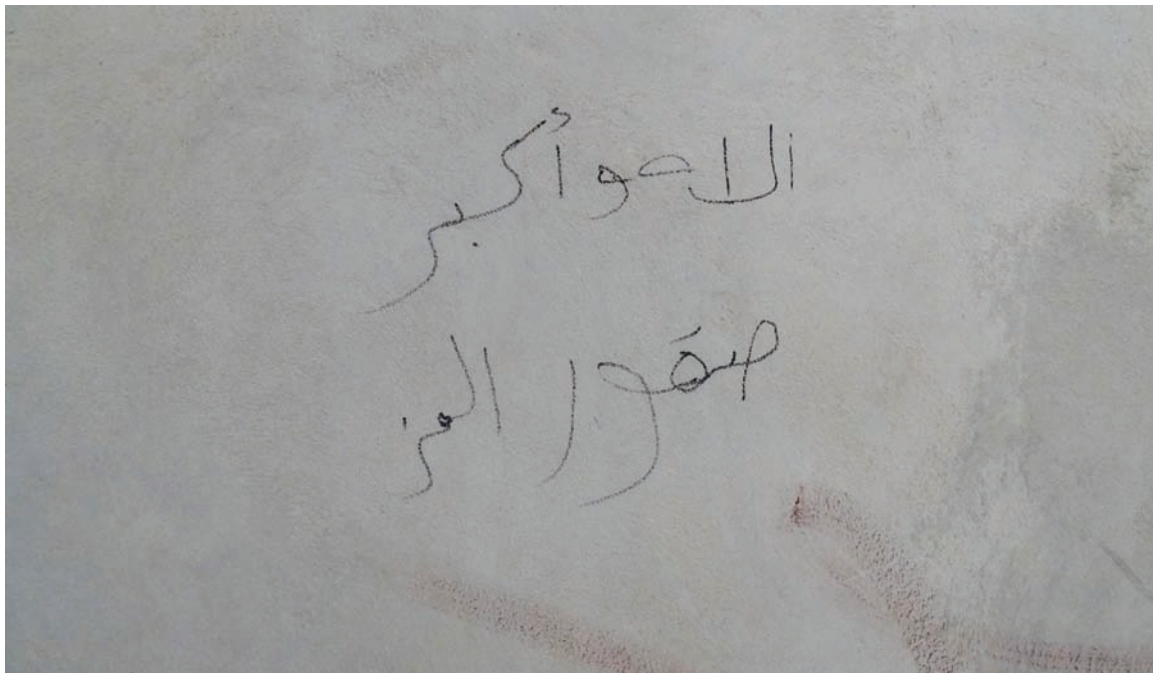 اللاهو أكبر
صقور العز